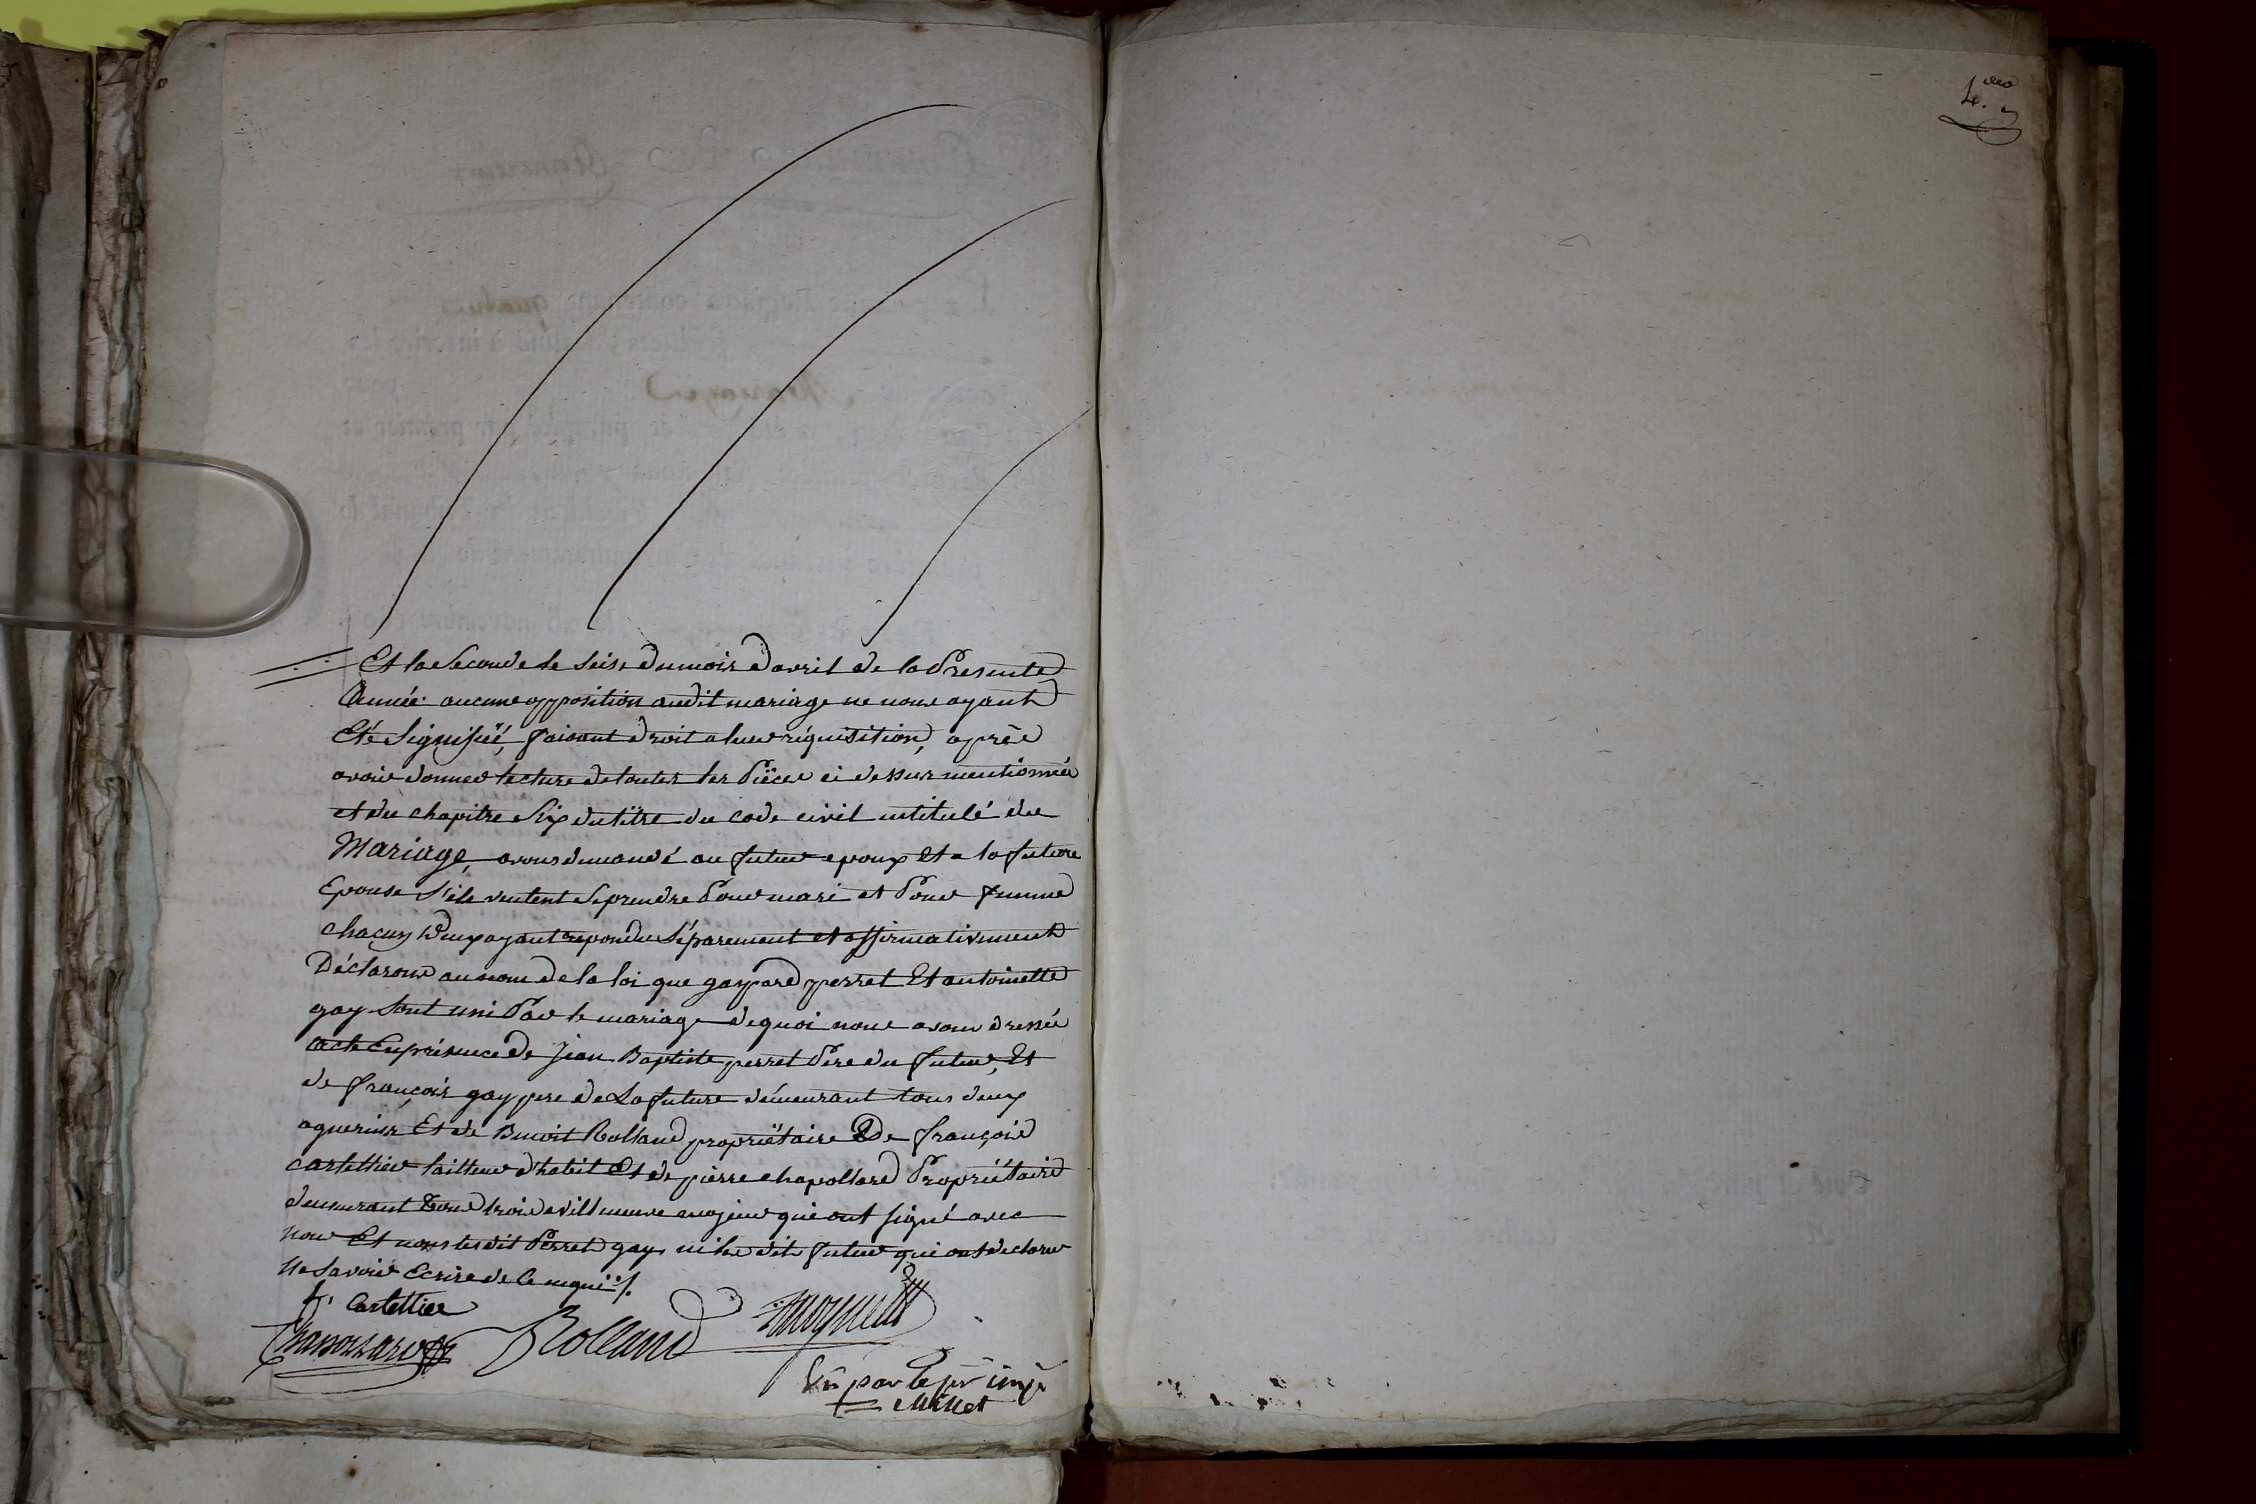 4.eme
Et la Seconde le Seise du mois d'avril de la Presente
Année aucune opposition audit mariage ne nous ayant
Eté Signifiié, faisant droit a leur réquisition, aprèe
avoir donner lecture de toutes les Piéces ci dessus mentionnée
et du chapitre Six du titre du code civil intitulé du
Mariage, avons demandé au futur epoux et a la future
Epouse s'ils veulent se prendre Pour mari et Pour femme
chacun d'eux ayant repondu Séparement et affirmativement
Déclarons au nom de la loi que gaspard perret Et antoinette
gay sont uni Par le mariage de quoi nous avons dressée
acte En présence de Jean Baptiste perret Pere du futur, Et
de françois gay pere de La future démeurant tous deux
aguerins Et de Benoit Rolland propriétaire Et De françois
cartellier tailleur d'habit Et de pierre chapollard Propriétaire
demeurant Tous trois a Villeneuve que ont signé avec
nous Et non lesdit Perret gay ni les dits futur qui ont declarer
Ne Savoir Ecrire de Ce requi ./.
f. Cartellier
Rolland
Vu par le pr
Millet